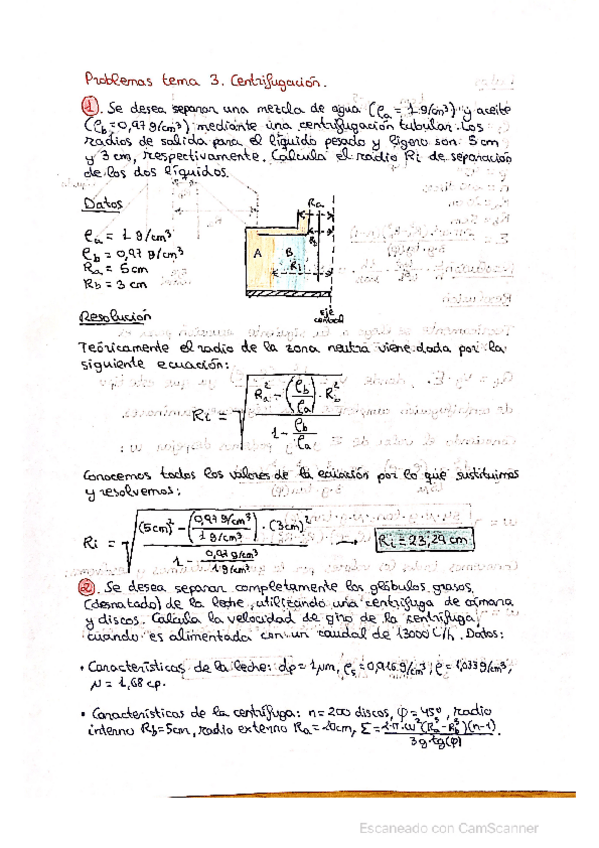 Problemas tema 3. Centrifugación.
1. Se desea separar una mezcla de agua (ρa = 1 g/cm³) y aceite
(ρb = 0,97 g/cm³) mediante una centrifugación tubular. Los
radios de salida para el líquido pesado y ligero son 5 cm
y 3 cm, respectivamente. Calcula el radio Ri de separación
de los dos líquidos.
Datos
ρa = 1 g/cm³
ρb = 0,97 g/cm³
Ra = 5 cm
Rb = 3 cm
Ra
Rb
A B
Ri
Eje
central
Resolución
Teóricamente el radio de la zona neutra viene dada por la
siguiente ecuación:
Ri = √((Ra² - (ρb/ρa) · Rb²) / (1 - ρb/ρa))
Conocemos todos los valores de la ecuación por lo que sustituimos
y resolvemos:
Ri = √(((5cm)² - (0,97 g/cm³ / 1 g/cm³) · (3cm)²) / (1 - 0,97 g/cm³ / 1 g/cm³)) → Ri = 23,29 cm
2. Se desea separar completamente los glóbulos grasos
(desnatado) de la leche, utilizando una centrífuga de cámara
y discos. Calcula la velocidad de giro de la centrífuga
cuando es alimentada con un caudal de 13000 L/h. Datos:
• Características de la leche: dp = 1 μm, ρs = 0,916 g/cm³; ρ = 1,033 g/cm³,
μ = 1,68 cp.
• Características de la centrífuga: n = 200 discos, φ = 45º, radio
interno Rb = 5cm, radio externo Ra = 20cm, Σ = 2·π·ω²(Ra³-Rb³)(n-1) / 3g·tg(φ).
Escaneado con CamScanner